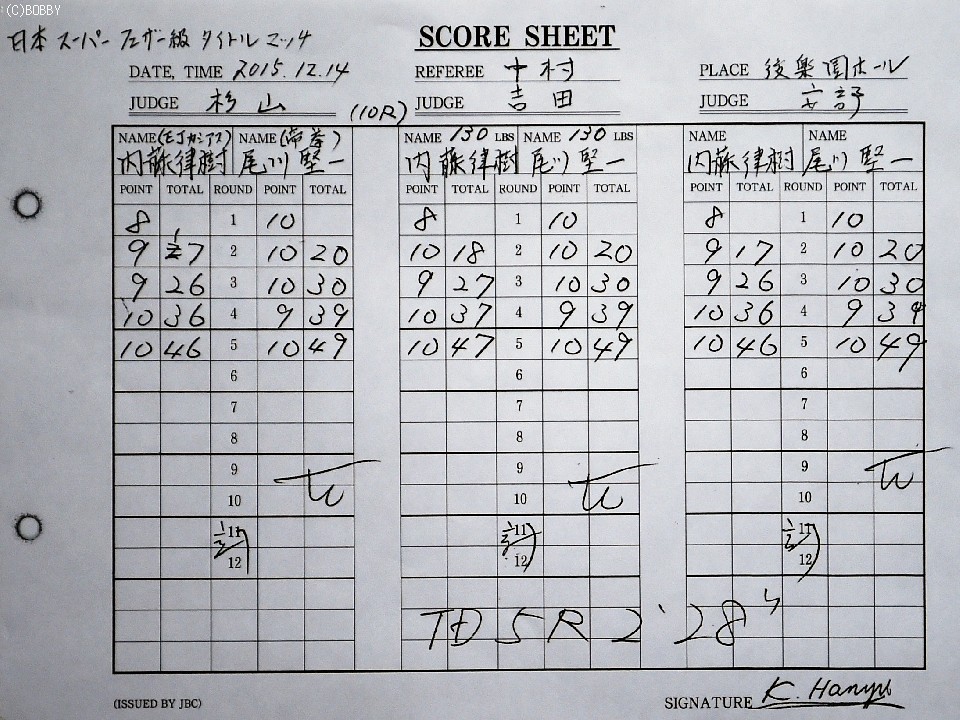 (C)BOBBY
日本スーパーフェザー級タイトルマッチ
SCORE SHEET
DATE, TIME 2015.12.14 REFEREE 中村 PLACE 後楽園ホール
JUDGE 杉山 (10R) JUDGE 吉田 JUDGE 安部
NAME (E.Jカシアス) NAME (帝拳) NAME 130 LBS NAME 130 LBS NAME NAME
内藤律樹 尾川堅一 内藤律樹 尾川堅一 内藤律樹 尾川堅一
POINT TOTAL ROUND POINT TOTAL POINT TOTAL ROUND POINT TOTAL POINT TOTAL ROUND POINT TOTAL
8 1 10 8 1 10 8 1 10
9 17 2 10 20 10 18 2 10 20 9 17 2 10 20
9 26 3 10 30 9 27 3 10 30 9 26 3 10 30
10 36 4 9 39 10 37 4 9 39 10 36 4 9 39
10 46 5 10 49 10 47 5 10 49 10 46 5 10 49
6 6 6
7 7 7
8 8 8
9 9 9
10 10 10
11 11 11
12 12 12
TD 5R 2'28"
(ISSUED BY JBC) SIGNATURE K. Hanyu